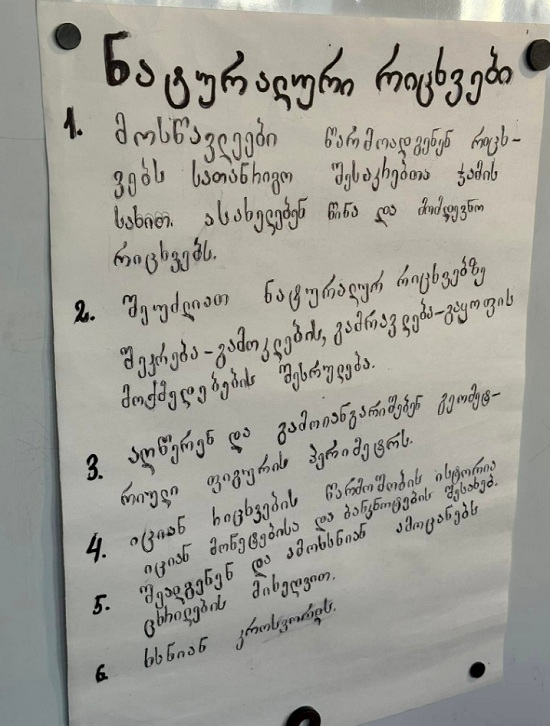 ნატურალური რიცხვები
1. მოსწავლეები წარმოადგენენ რიცხ-
ვებს სათანრიგო შესაკრებთა ჯამის
სახით. ასახელებენ წინა და მომდევნო
რიცხვებს.
2. შეუძლიათ ნატურალურ რიცხვებზე
შეკრება-გამოკლების, გამრავლება-გაყოფის
მოქმედებების შესრულება.
3. აღწერენ და გამოიანგარიშებენ გეომეტ-
რიული ფიგურის პერიმეტრს.
4. იციან რიცხვების წარმოშობის ისტორია
იციან მონეტებისა და ბანკნოტების შესახებ.
5. შეადგენენ და ამოხსნიან ამოცანებს
ცხრილების მიხედვით.
6. ხსნიან კროსვორდს.